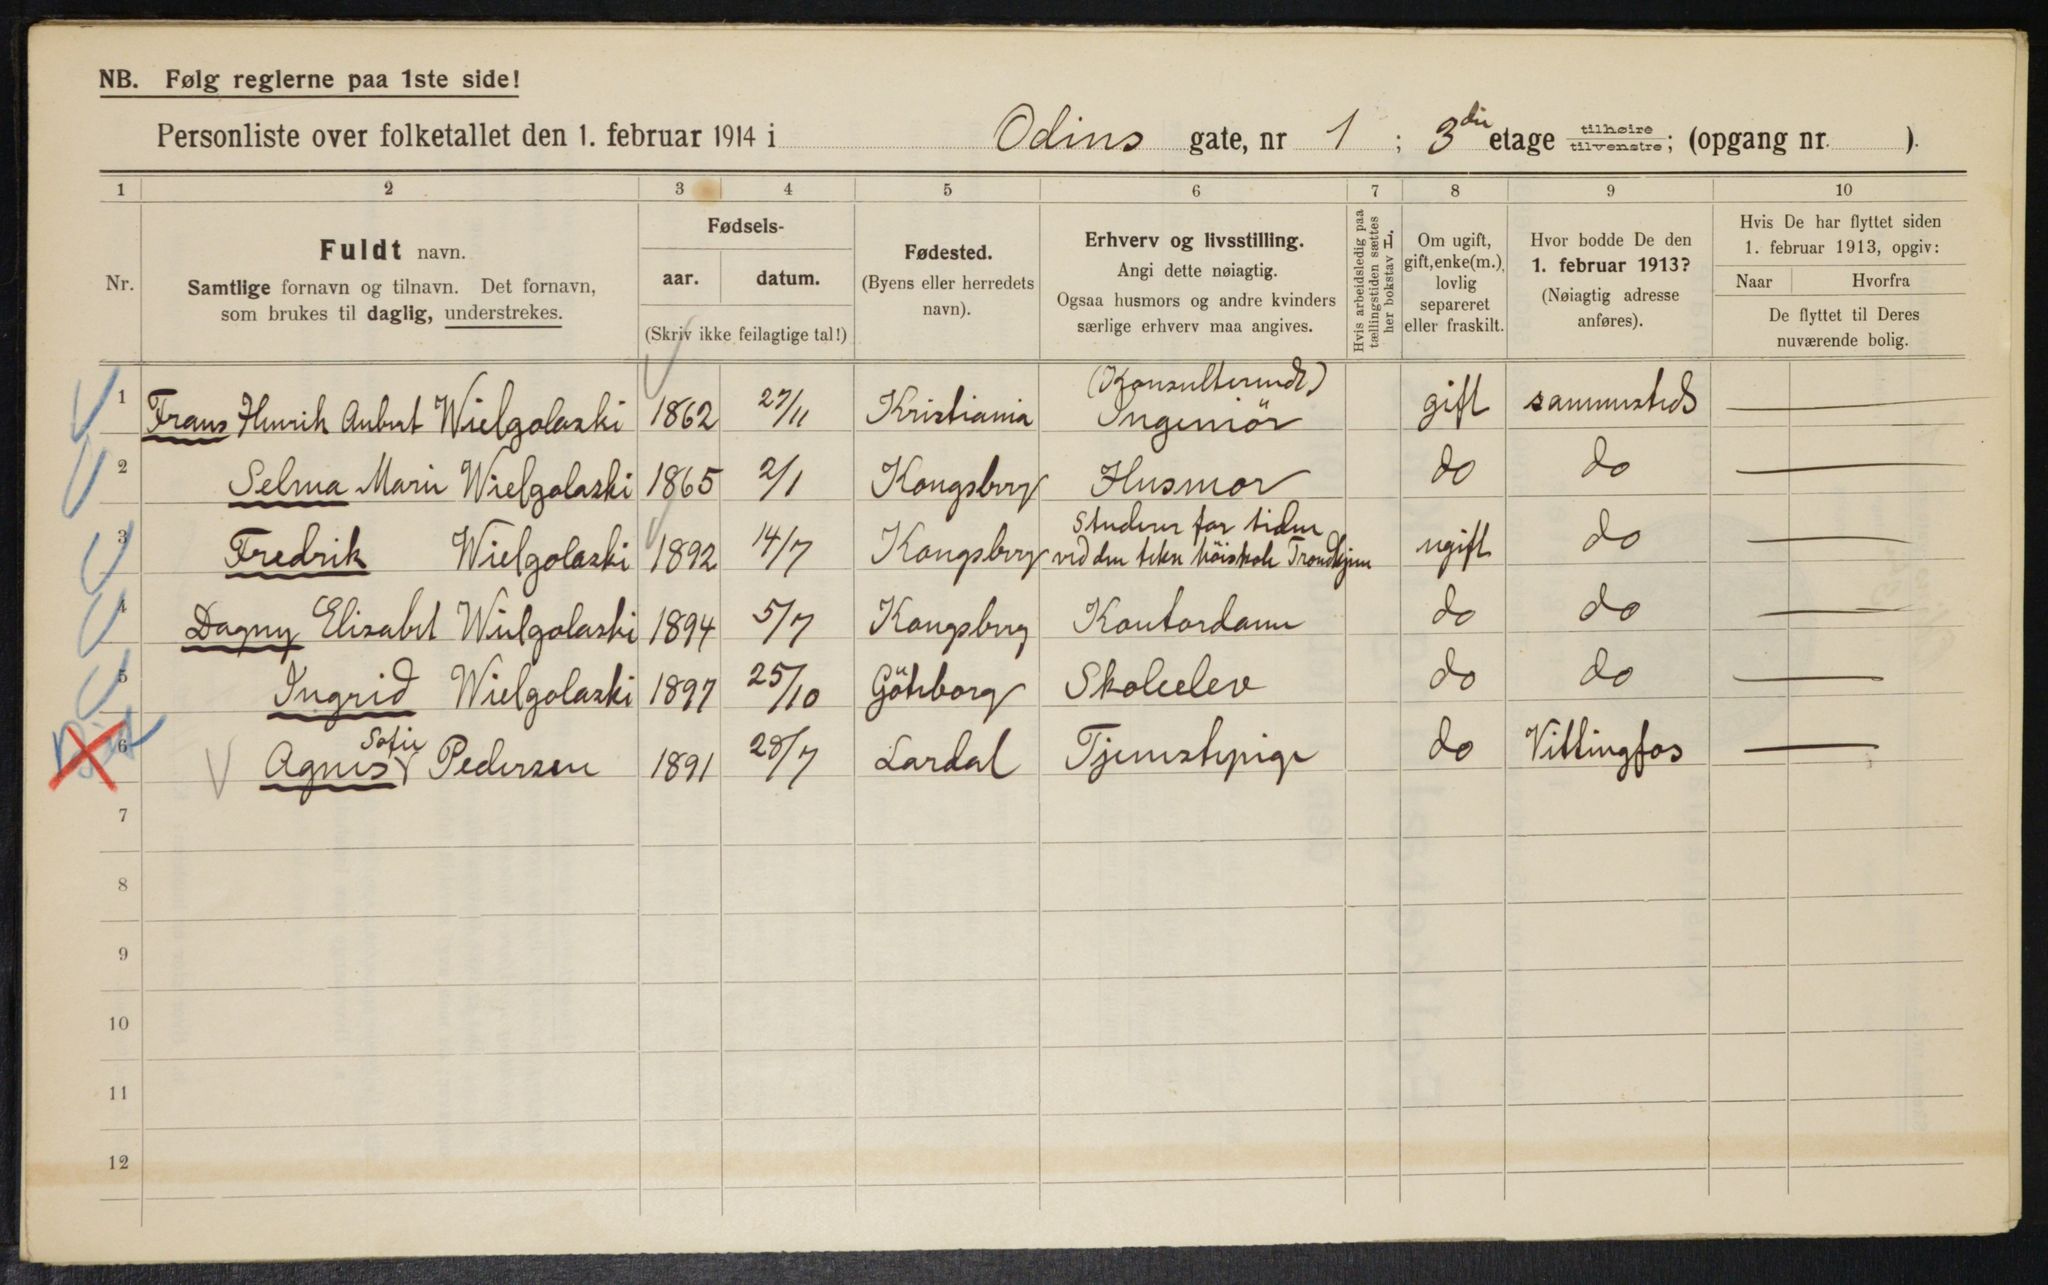 NB. Følg reglerne paa 1ste side!
Personliste over folketallet den 1. februar 1914 i Odins gate, nr 1; 3die etage tilhøire tilvenstre; (opgang nr. ).
1 2 3 4 5 6 7 8 9 10
Nr.
Fuldt navn.
Samtlige fornavn og tilnavn. Det fornavn,
som brukes til daglig, understrekes.
Fødsels-
aar. datum.
(Skriv ikke feilagtige tal!)
Fødested.
(Byens eller herredets
navn).
Erhverv og livsstilling.
Angi dette nøiagtig.
Ogsaa husmors og andre kvinders
særlige erhverv maa angives.
Hvis arbeidsledig paa
tællingstiden sættes
her bokstav L.
Om ugift,
gift, enke(m.),
lovlig
separeret
eller fraskilt.
Hvor bodde De den
1. februar 1913?
(Nøiagtig adresse
anføres).
Hvis De har flyttet siden
1. februar 1913, opgiv:
Naar Hvorfra
De flyttet til Deres
nuværende bolig.
(Konsulterende)
1 Frans Henrik Aubert Wielgolaski 1862 27/11 Kristiania Ingeniör gift sammesteds —
2 Selma Marie Wielgolaski 1865 2/1 Kongsberg Husmor do do —
Studerer for tiden
3 Fredrik Wielgolaski 1892 14/7 Kongsberg ved den tekn höiskole Trondhjem ugift do —
4 Dagny Elisabet Wielgolaski 1894 5/7 Kongsberg Kontordame do do —
5 Ingrid Wielgolaski 1897 25/10 Göteborg Skoleelev do do —
6 Agnes Sofie Pedersen 1891 28/7 Lardal Tjenestepige do Vittingfos —
7
8
9
10
11
12